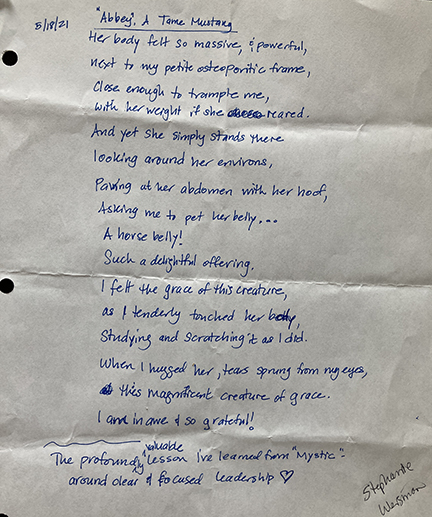 5/18/21
"Abbey", A Tame Mustang
Her body felt so massive, & powerful,
next to my petite osteoporitic frame,
Close enough to trample me,
with her weight if she reared.
And yet she simply stands there
looking around her environs,
Pawing at her abdomen with her hoof,
Asking me to pet her belly...
A horse belly!
Such a delightful offering.
I felt the grace of this creature,
as I tenderly touched her belly,
Studying and scratching it as I did.
When I hugged her, tears sprung from my eyes,
this magnificent creature of grace.
I am in awe & so grateful!
The profoundly valuable lesson I've learned from "Mystic"-
around clear & focused leadership ♡
Stephanie
Weisman